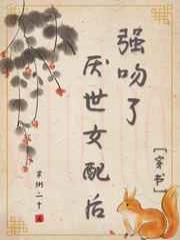 强吻了
厌世女配后
[穿书]